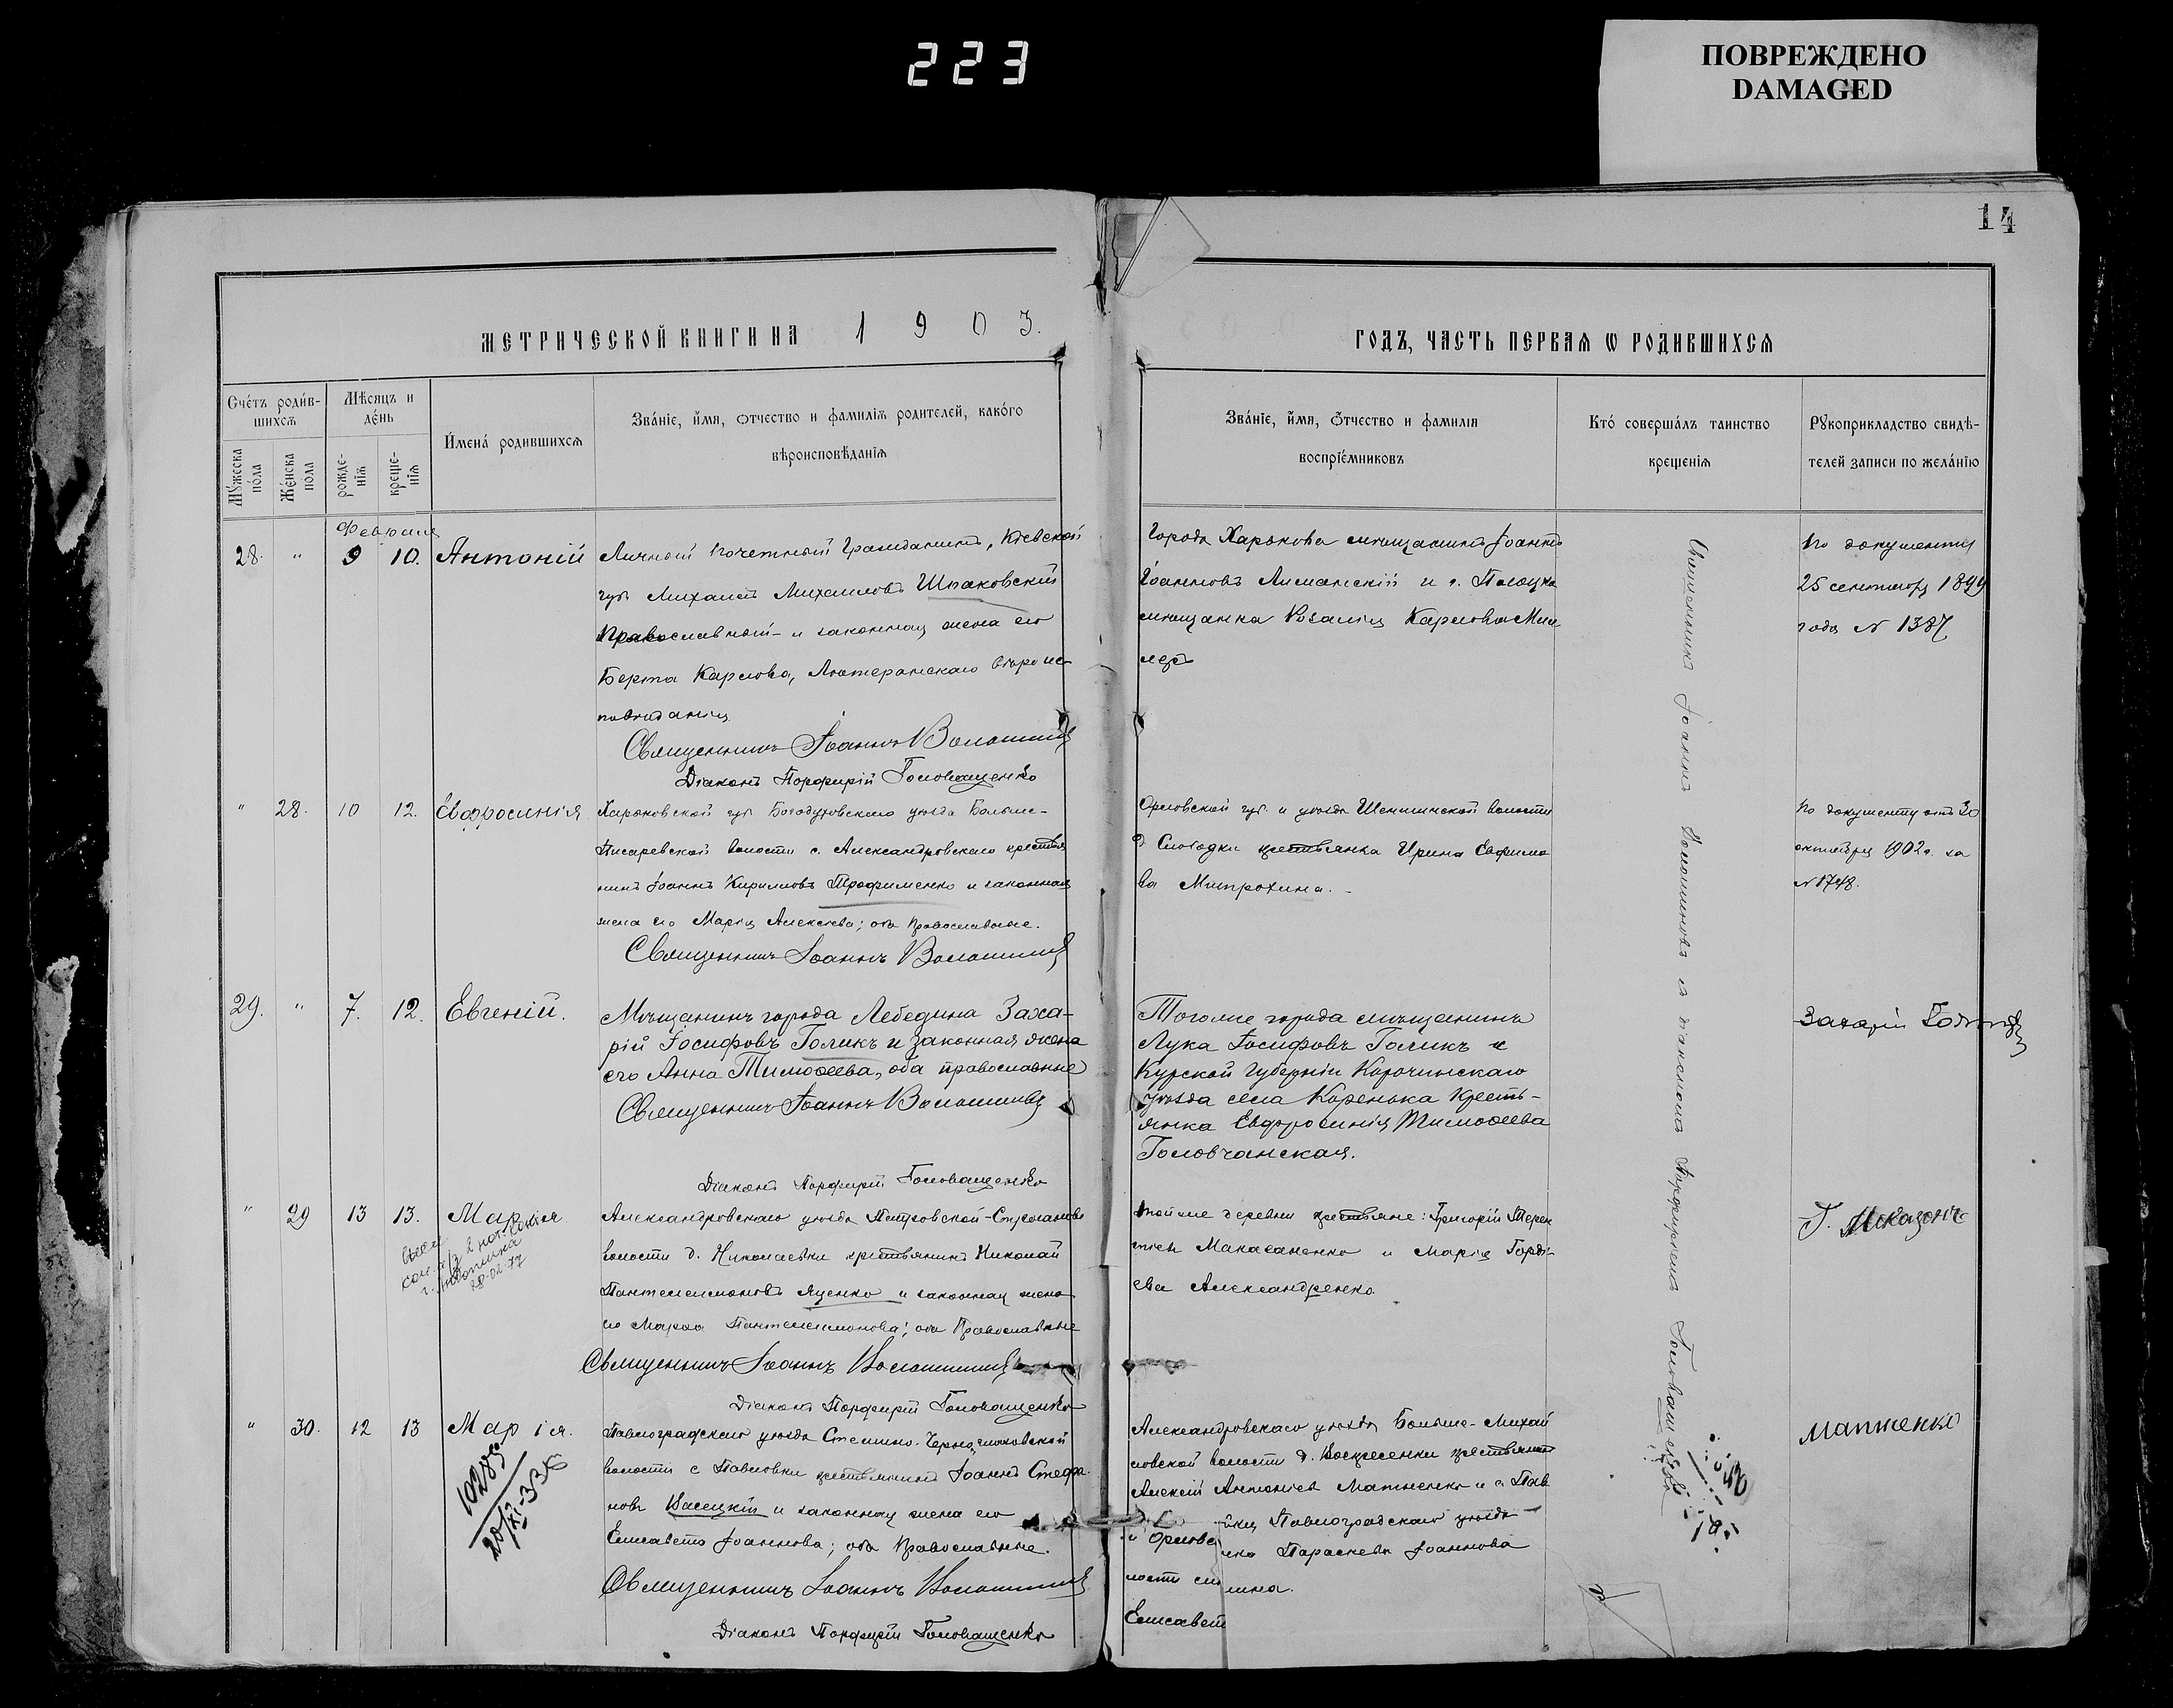 223
ПОВРЕЖДЕНО
DAMAGED
14
МЕТРИЧЕСКОЙ КНИГИ НА 1903.
ГОДЪ, ЧАСТЬ ПЕРВАЯ Ѡ РОДИВШИХСЯ
Счетъ родившихся
Мѣсяцъ и день
Имена родившихся
Званіе, имя, отчество и фамилія родителей, какого
вѣроисповѣданія
Званіе, имя, отчество и фамилія
воспріемниковъ
Кто совершалъ таинство
крещенія
Рукоприкладство свидѣ-
телей записи по желанію
Мужеска пола
Женска пола
рожде-
нія
креще-
нія
Февраля
28. " 9 10. Антоній
Личный почетный гражданинъ, Кіевской
губ. Михаилъ Михаиловъ Шпаковскій
православный - и законная жена его
Берта Карлова, Лютеранскаго вѣроис-
повѣданія
Священникъ Іоаннъ Волошиновъ
Діаконъ Порфирій Головащенко
Города Харькова мѣщанинъ Іоаннъ
Іоанновъ Лиманскій и г. Полоцка
мѣщанка Розалія Карлова Мил
леръ
По документу
25 сентября 1899
года N 1387
" 28. 10 12. Евфросинія
Харьковской губ. Богодуховскаго уѣзда Больше-
Писаревской волости с. Александровскаго крестья
нинъ Іоаннъ Кирилловъ Трофименко и законная
жена его Марія Алексѣева; оба православные.
Священникъ Іоаннъ Волошиновъ
Орловской губ. и уѣзда волости
д. Слободки крестьянка Ирина Евфимо
ва Митрохина.
По документу отъ 30
октября 1902 г. за
N 1748.
29. " 7. 12. Евгеній.
Мѣщанинъ города Лебедина Заха-
рій Іосифовъ Голикъ и законная жена
его Анна Тимоѳеева, оба православные
Священникъ Іоаннъ Волошиновъ
Діаконъ Порфирій Головащенко
Тогоже города мѣщанинъ
Лука Іосифовъ Голикъ и
Курской Губерніи Корочинскаго
уѣзда села Коренька Кресть-
янка Евфросинія Тимоѳеева
Головчанская.
Захарій
" 29 13 13. Марія
28-02-77
Александровскаго уѣзда Петровской-
волости д. Николаевки крестьянинъ Николай
Пантелеимоновъ Яценко и законная жена
его Марѳа Пантелеимонова; оба Православные
Священникъ Іоаннъ Волошиновъ
Діаконъ Порфирій Головащенко
Тойже деревни крестьяне: Григорій Терен
тіевъ Макасаненко и Марія Горді-
ева Александренко.
Г.
" 30. 12 13 Марія.
10285
20/XI-336
Павлоградскаго уѣзда
волости с. Павловки крестьянинъ Іоаннъ Стефа-
новъ Васецкій и законная жена его
Елисавета Іоаннова; оба Православные.
Священникъ Іоаннъ Волошиновъ
Діаконъ Порфирій Головащенко
Александровскаго уѣзда Больше-Михай
ловской волости д. Воскресенки крестьянинъ
Алексій Антоніевъ Матженко и с. Пав
Павлоградскаго уѣзда
и Параскева Іоаннова
лости
Елисавет
Матженко
Священникъ Іоаннъ Волошиновъ съ діакономъ Порфиріемъ Головащенкомъ